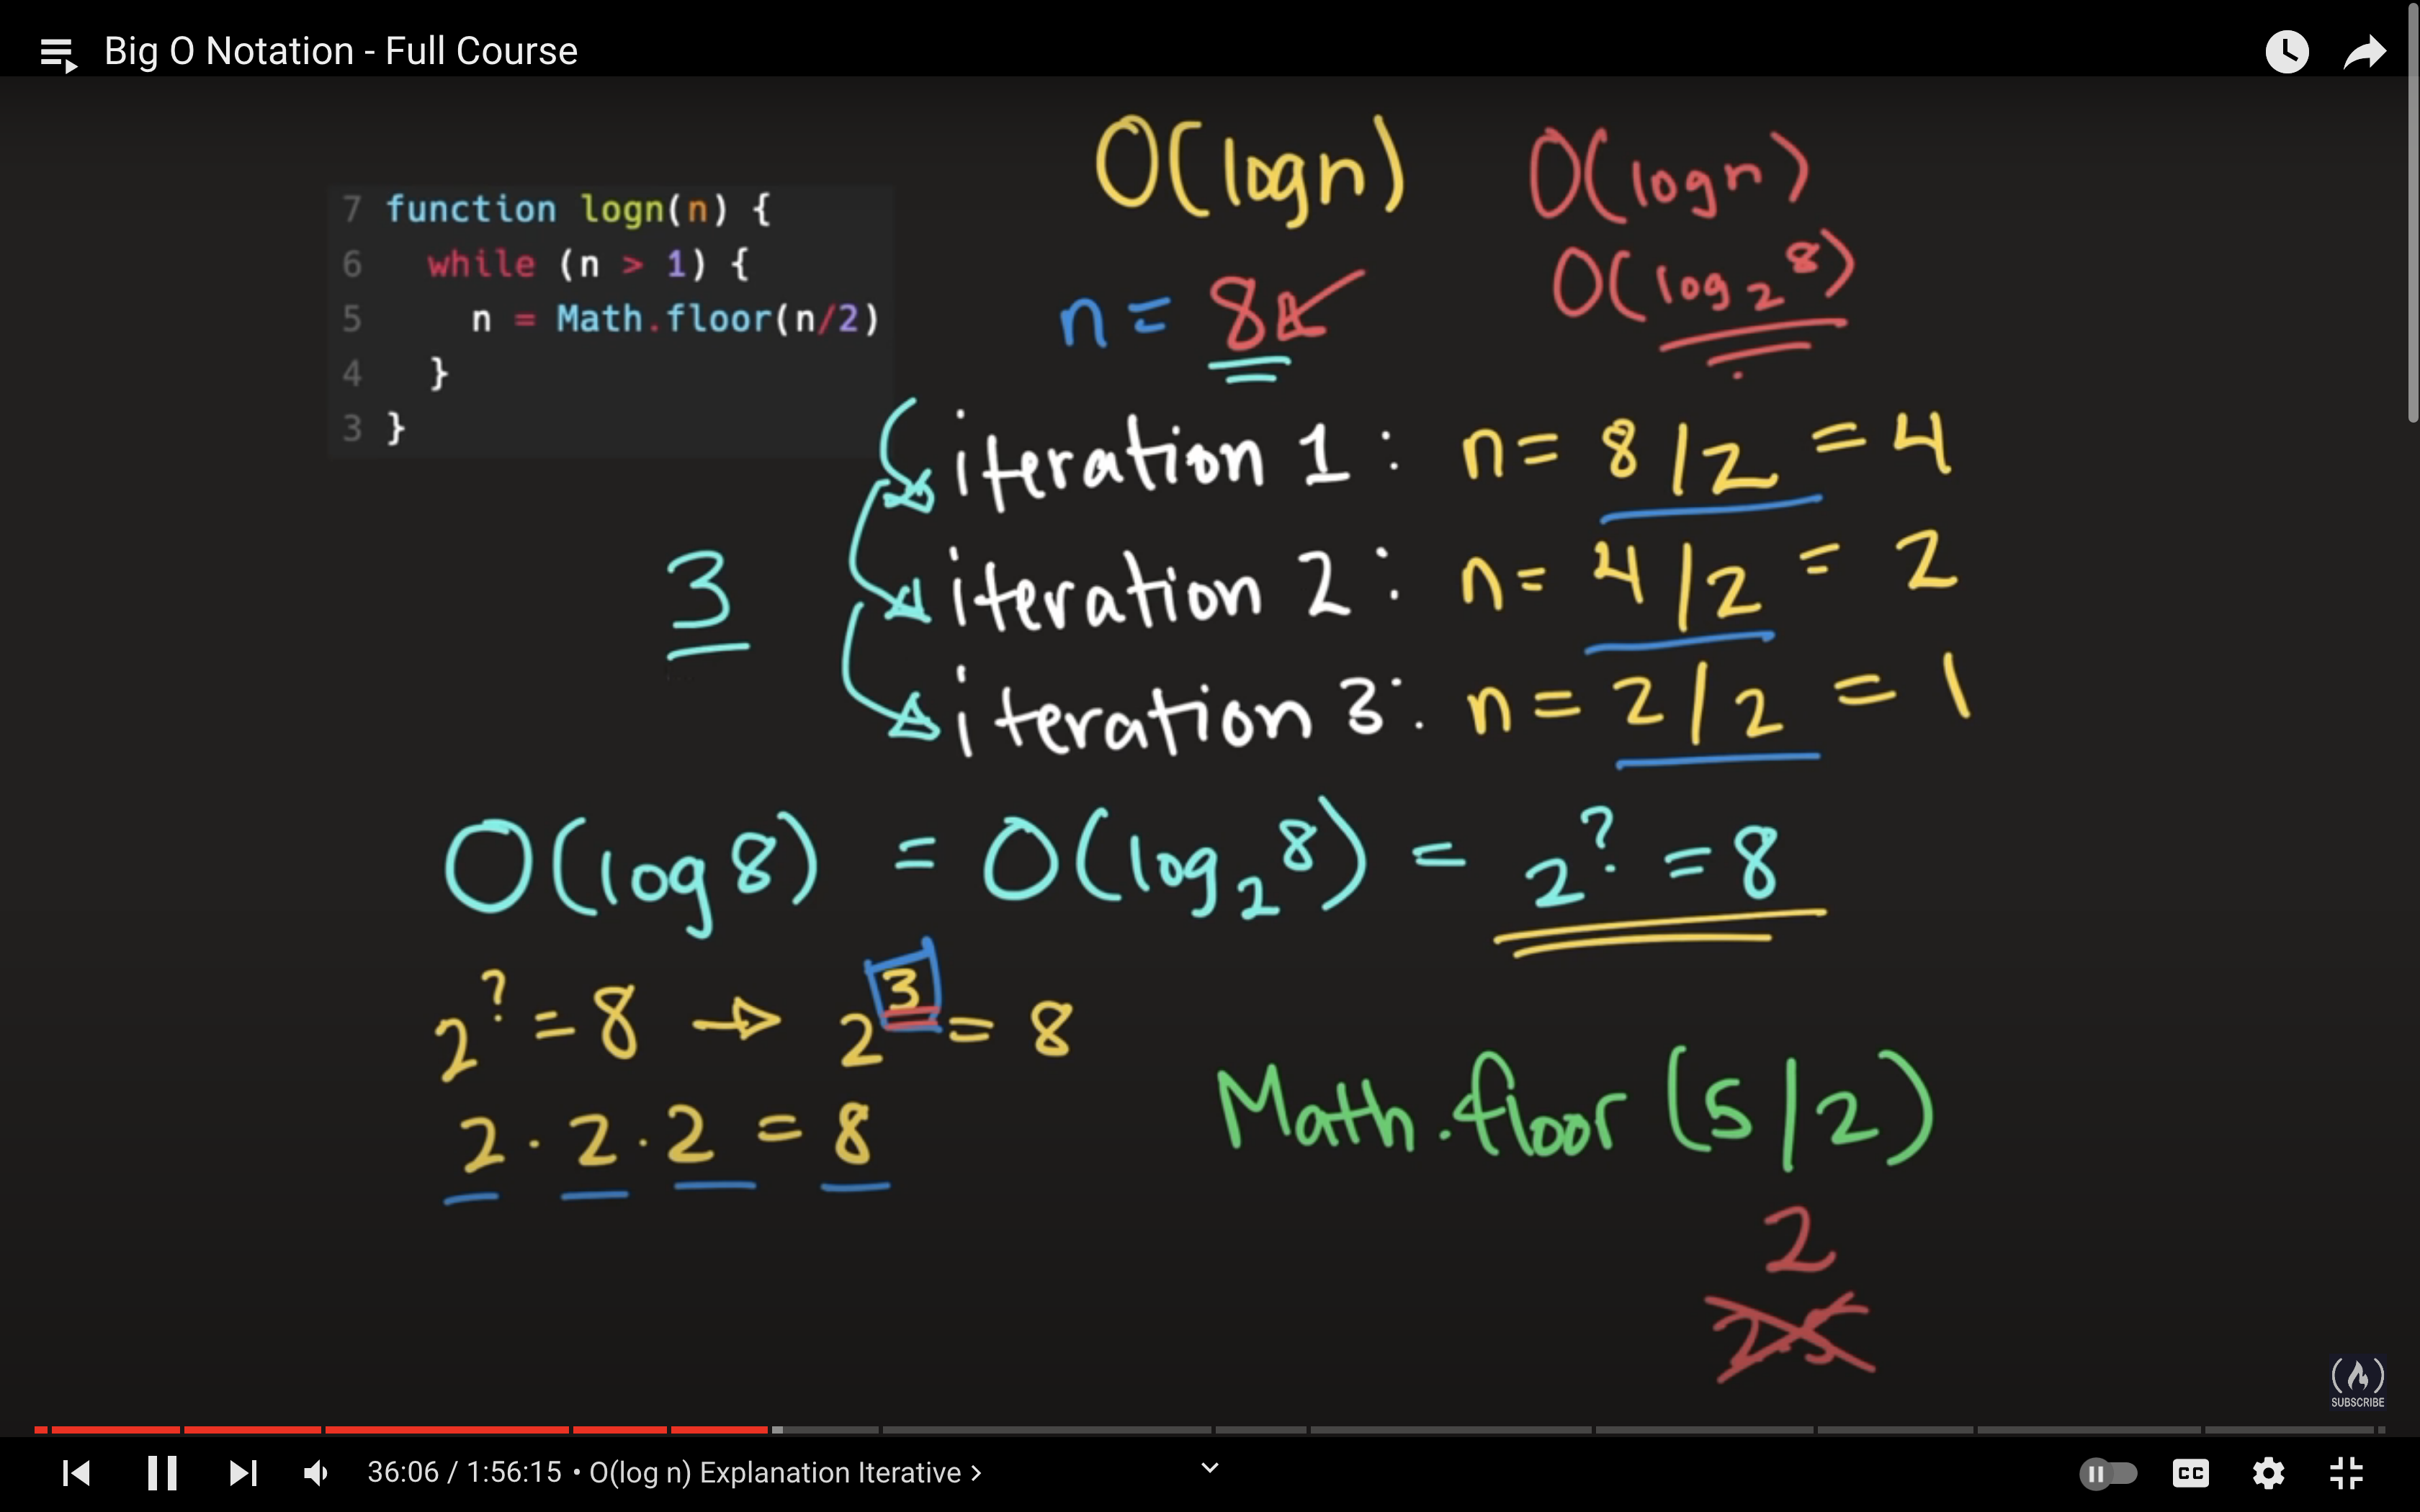 Big O Notation - Full Course
O(logn) O(logn)
7 function logn(n) {
6 while (n > 1) {
5 n = Math.floor(n/2)
4 }
3 }
O(log₂8)
n = 8
iteration 1: n = 8/2 = 4
3
iteration 2: n = 4/2 = 2
iteration 3: n = 2/2 = 1
O(log 8) = O(log₂8) = 2^? = 8
2^? = 8 → 2^3 = 8
2 · 2 · 2 = 8
Math.floor(5/2)
2
2.5
SUBSCRIBE
36:06 / 1:56:15 • O(log n) Explanation Iterative >
CC